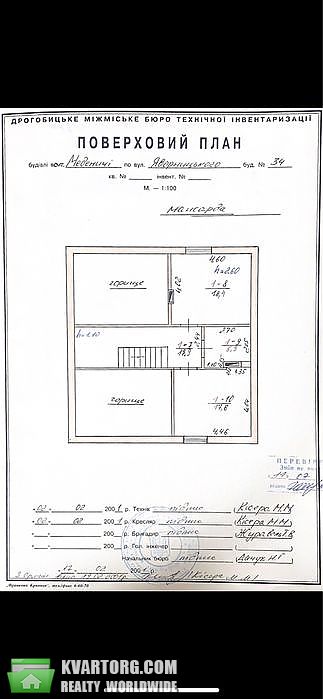 ДРОГОБИЦЬКЕ МІЖМІСЬКЕ БЮРО ТЕХНІЧНОЇ ІНВЕНТАРИЗАЦІЇ
ПОВЕРХОВИЙ ПЛАН
будівлі Меденичі по вул. Яворницького буд. № 34
кв. № інвент. №
М. — 1:100
мансарда
4,60
h=2.60
горище
4,02
1-8
18,4
h=2.10
2.70
1-7
19,3
2,44
1-9
5,3
1.35
горище
1-10
17,6
4,04
4,46
ПЕРЕВІ
02 02 200 р. Технік підпис Кісера М.М.
02 02 200 р. Кресляр підпис Кісера М.М.
200 р. Бригадир підпис Журавськ
200 р. Гол. інженер
Начальник бюро підпис Дацук Н.Р
200 р. Кісера М.М.
KVARTORG.COM
REALTY WORLDWIDE